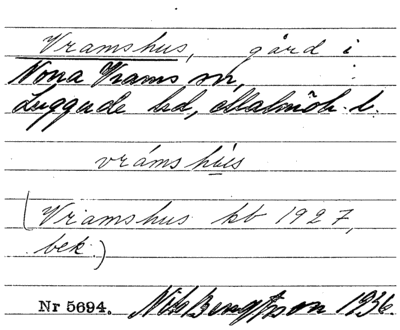 Vramshus, gård i
Norra Vrams sn,
Luggude hd, Malmöh. l.
vrámshùs
(Vramshus kb 1927,
bek.)
Nr 5694. Nils Bengtsson 1936.